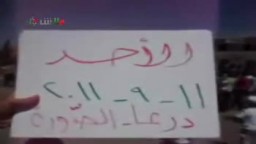 الأحد
١١-٩-٢٠١١
درعا-الصورة